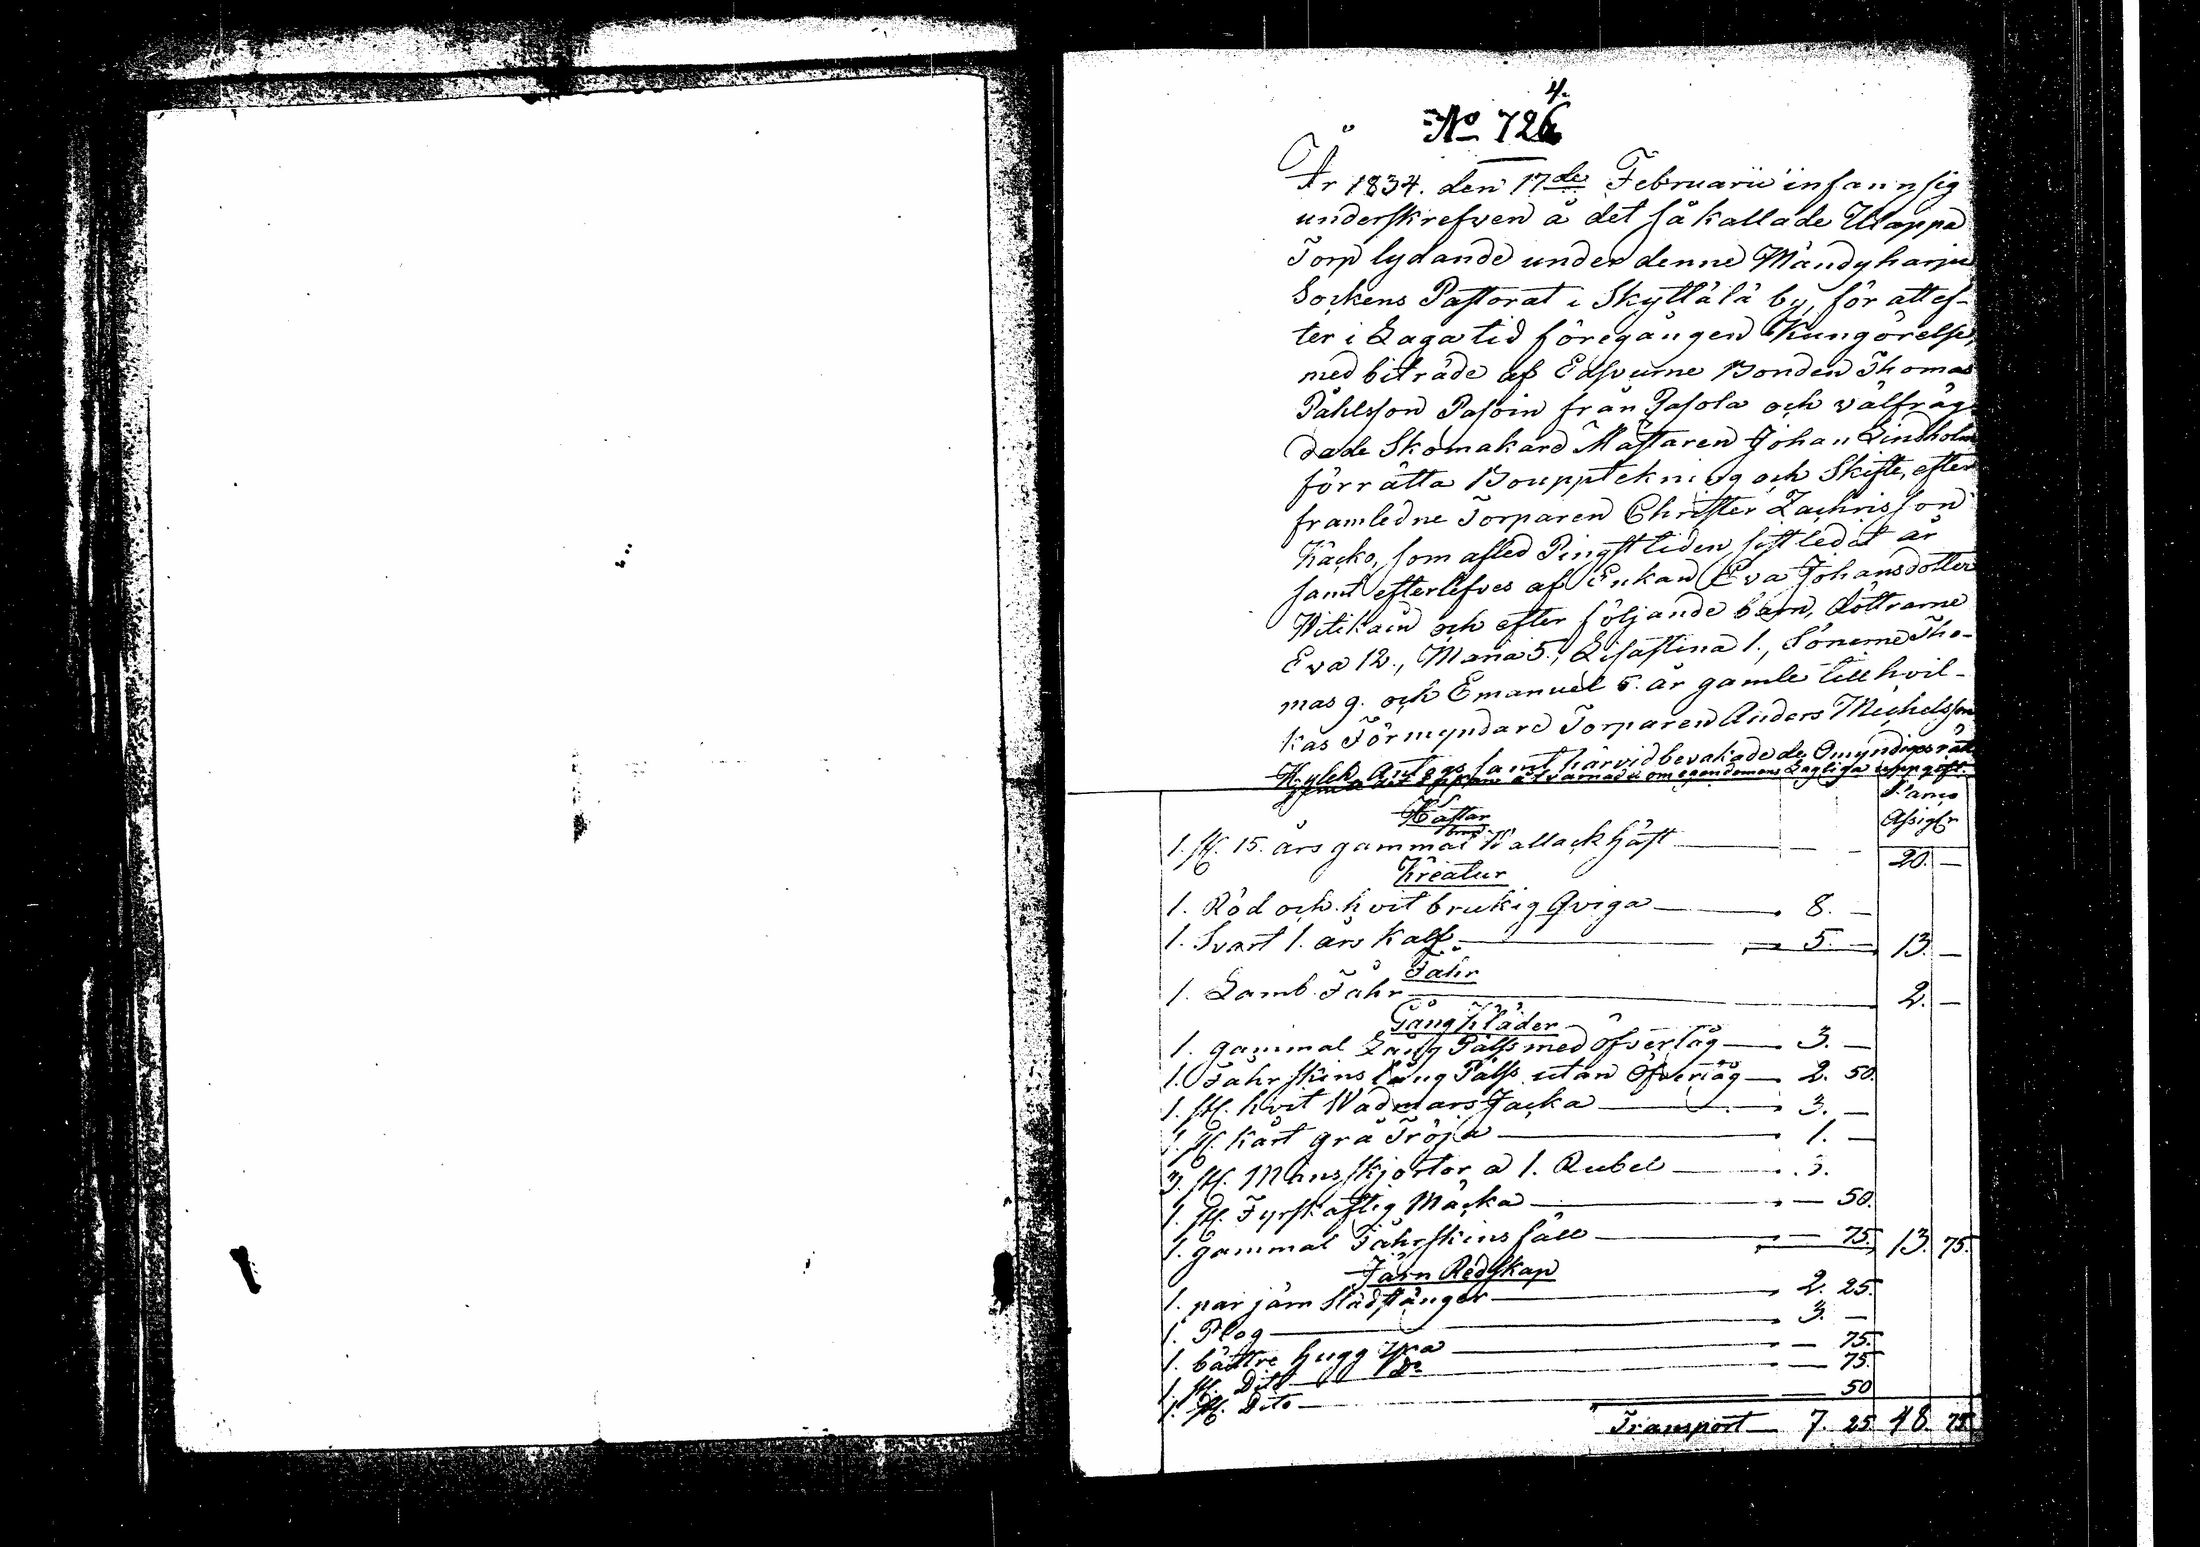 4.
No 726
År 1834. den 17de Februarii infann sig
underskrefven å det så kallade Ulappa
Torp lydande under denne Mändyharju
Sockens Pastorat i Skyttälä by, för att ef-
ter i Laga tid föregången Kungörelse,
med biträde af Edsvurne Bonden Thomas
Påhlsson Pasoin från Pasola och välfräg-
dade Skomakare Mästaren Johan Lindholm
förrätta Boupptekning och Skifte, efter
framledne Torparen Christer Zachrisson
Käcko, som afled Pingst tiden sistledit år
samt efterlefves af Enkan Eva Johansdotter
Witikain och efter följande barn, döttrarne
Eva 12., Maria 5., Lisastina 1., Sönerne Tho-
mas 9. och Emanuel 5. år gamle till hvil-
kas Förmyndare Torparen Anders Michelsson
Hylck antogs samt härvid bevakade de Omyndiges rätt
Enkan åtvarnades om egendomens Lagliga uppgift.
B:anco
Assigr
Hästar
1. st. 15. års gammal brun Wallack häst — — — 20. —
Kreatur
1. Röd och hvit brukig Qviga — 8. —
1. Svart 1. års Kalf — 5. — 13. —
Fåhr
1. Lamb Fåhr — 2. —
Gångkläder
1. gammal Lång Päls med öfvertåg — 3. —
1. Fåhrskins lång Päls utan Öfvertåg — 2. 50.
1. st. hvit Wadmars Jacka — 3. —
1. st. kårt grå Tröja — 1. —
3. st. Mans skjortor a 1. Rubel — 3.
1. st. Fyrskaftig Mäcka — — 50.
1. gammal Fåhrskins fäll — — 75. 13. 75.
Järn Redskap
1. par järn Slädstänger — 2. 25.
1. Plog — 3. —
1. bättre hugg yxa — — 75.
1. st. Dito do — — 75.
1. st. Dito — — 50
Transport — 7. 25. 48. 75.